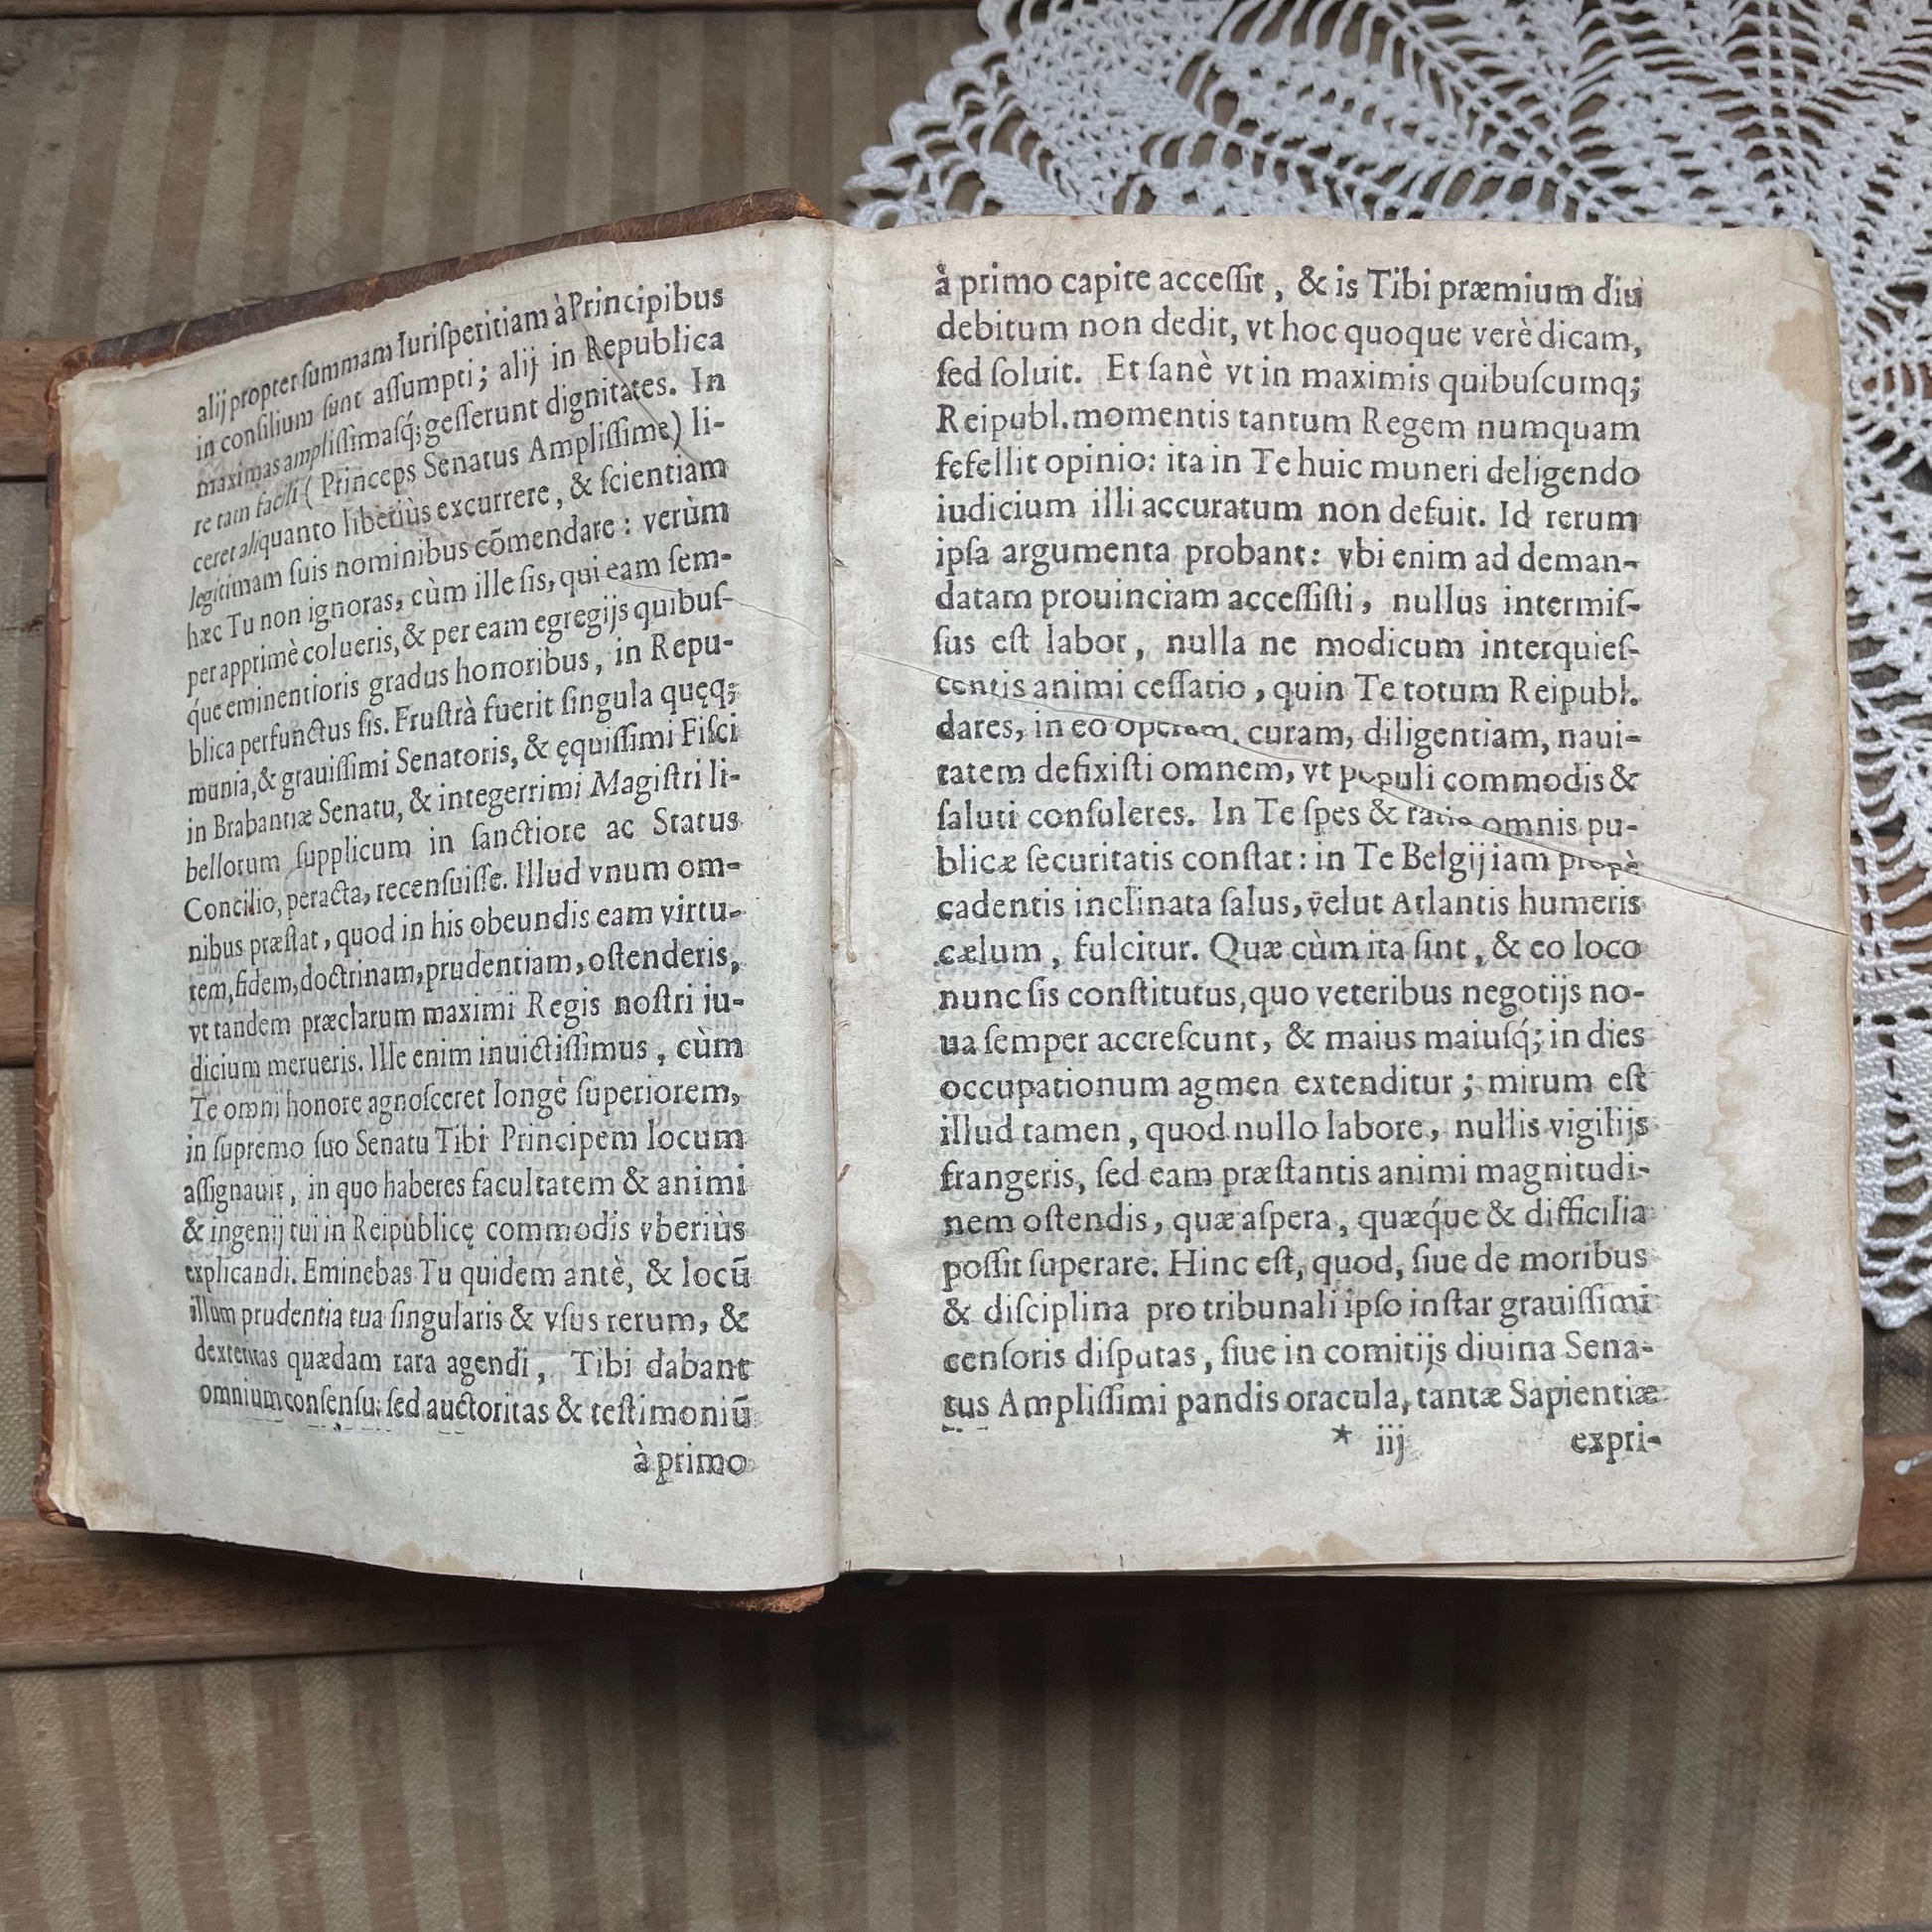 alij propter ſummam Iuriſperitiam à Principibus
in conſilium ſunt aſſumpti; alij in Republica
maximas ampliſſimaſq́; geſſerunt dignitates. In
re tam facili ( Princeps Senatus Ampliſſime) li-
ceret aliquanto liberiùs excurrere, & ſcientiam
legitimam ſuis nominibus cõmendare: verùm
hæc Tu non ignoras, cùm ille ſis, qui eam ſem-
per apprimè colueris, & per eam egregijs quibuſ-
q́ue eminentioris gradus honoribus, in Repu-
blica perfunctus ſis. Fruſtrà fuerit ſingula quęq;
munia, & grauiſſimi Senatoris, & ęquiſſimi Fiſci
in Brabantiæ Senatu, & integerrimi Magiſtri li-
bellorum ſupplicum in ſanctiore ac Status
Concilio, peracta, recenſuiſſe. Illud vnum om-
nibus præſtat, quod in his obeundis eam virtu-
tem, fidem, doctrinam, prudentiam, oſtenderis,
vt tandem præclarum maximi Regis noſtri iu-
dicium merueris. Ille enim inuictiſſimus, cùm
Te omni honore agnoſceret longè ſuperiorem,
in ſupremo ſuo Senatu Tibi Principem locum
aſſignauit, in quo haberes facultatem & animi
& ingenij tui in Reipublicę commodis vberiùs
explicandi. Eminebas Tu quidem antè, & locũ
illum prudentia tua ſingularis & vſus rerum, &
dexteritas quædam rara agendi, Tibi dabant
omnium conſenſu: ſed auctoritas & teſtimoniũ
à primo
à primo capite acceſſit, & is Tibi præmium diu
debitum non dedit, vt hoc quoque verè dicam,
ſed ſoluit. Et ſanè vt in maximis quibuſcumq;
Reipubl. momentis tantum Regem numquam
fefellit opinio: ita in Te huic muneri deligendo
iudicium illi accuratum non defuit. Id rerum
ipſa argumenta probant: vbi enim ad deman-
datam prouinciam acceſſiſti, nullus intermiſ-
ſus eſt labor, nulla ne modicum interquieſ-
centis animi ceſſatio, quin Te totum Reipubl.
dares, in eo operam, curam, diligentiam, naui-
tatem defixiſti omnem, vt populi commodis &
ſaluti conſuleres. In Te ſpes & ratio omnis pu-
blicæ ſecuritatis conſtat: in Te Belgij iam propè
cadentis inclinata ſalus, velut Atlantis humeris
cælum, fulcitur. Quæ cùm ita ſint, & eo loco
nunc ſis conſtitutus, quo veteribus negotijs no-
ua ſemper accreſcunt, & maius maiuſq́; in dies
occupationum agmen extenditur; mirum eſt
illud tamen, quod nullo labore, nullis vigilijs
frangeris, ſed eam præſtantis animi magnitudi-
nem oſtendis, quæ aſpera, quæq́ue & difficilia
poſſit ſuperare. Hinc eſt, quod, ſiue de moribus
& diſciplina pro tribunali ipſo inſtar grauiſſimi
cenſoris diſputas, ſiue in comitijs diuina Sena-
tus Ampliſſimi pandis oracula, tantæ Sapientiæ
* iij expri-